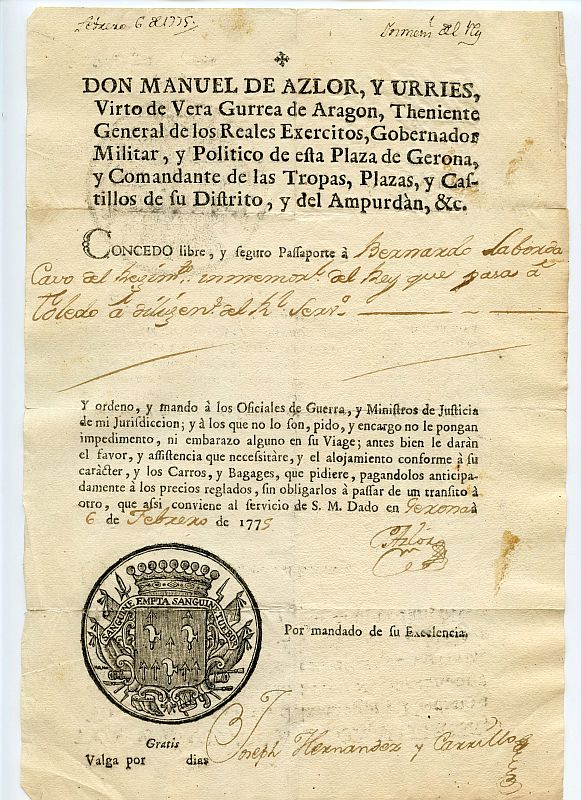 Febrero 6 de 1775,, Inmem.l del Rey
DON MANUEL DE AZLOR, Y URRIES,
Virto de Vera Gurrea de Aragon, Theniente
General de los Reales Exercitos, Gobernador
Militar, y Politico de eſta Plaza de Gerona,
y Comandante de las Tropas, Plazas, y Caſ-
tillos de ſu Diſtrito, y del Ampurdàn, &c.
CONCEDO libre, y ſeguro Paſſaporte à Bernardo Laborda
Cavo del Regim.to inmemor.l del Rey que pasa à
Toledo à diligen.s del R.l Serv.o
Y ordeno, y mando à los Oficiales de Guerra, y Miniſtros de Juſticia
de mi Juriſdiccion; y à los que no lo ſon, pido, y encargo no le pongan
impedimento, ni embarazo alguno en ſu Viage; antes bien le daràn
el favor, y aſſiſtencia que neceſitàre, y el alojamiento conforme à ſu
caràcter, y los Carros, y Bagages, que pidiere, pagandolos anticipa-
damente à los precios reglados, ſin obligarlos à paſſar de un tranſito à
otro, que aſſi conviene al ſervicio de S. M. Dado en Gerona à
6 de Febrero de 1775
Azlor
SANGUINE EMPTA SANGUINE TUEBOR
Por mandado de ſu Excelencia,
Gratis
Joseph Hernandez y Carrillo
Valga por dias